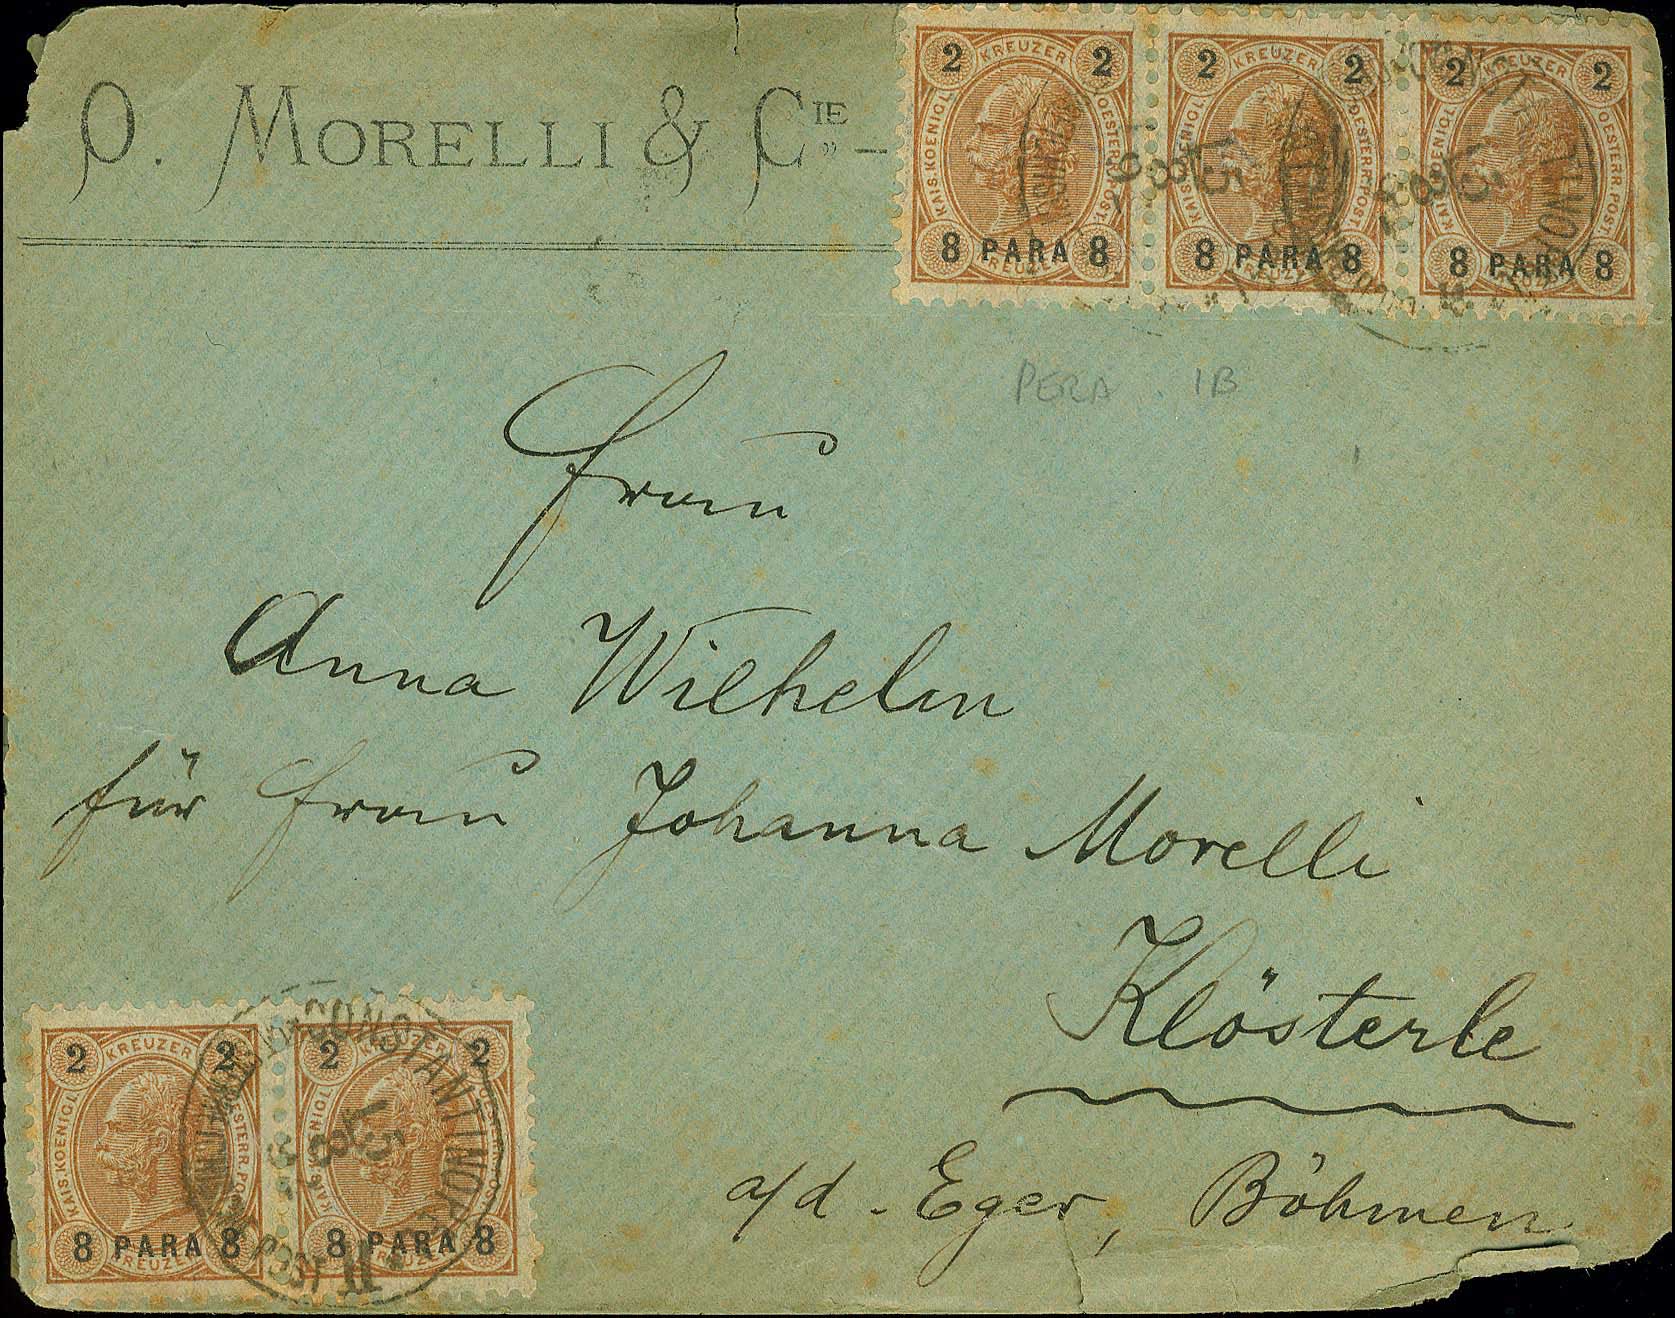 O. MORELLI & CIE „ —
2 KREUZER 2 2 KREUZER 2 2 KREUZER 2
KAIS. KOENIGL. OESTERR. POST. KAIS. KOENIGL. OESTERR. POST. KAIS. KOENIGL. OESTERR. POST.
8 PARA 8 8 PARA 8 8 PARA 8
PERA . 1B
Frau
Anna Wilhelm
für Frau Johanna Morelli
Klösterle
a/d - Eger, Böhmen
2 KREUZER 2 2 KREUZER 2
KAIS. KOENIGL. OESTERR. POST. KAIS. KOENIGL. OESTERR. POST.
8 PARA 8 8 PARA 8
KREUZER KREUZER
CONSTANTINOPEL II
15
8